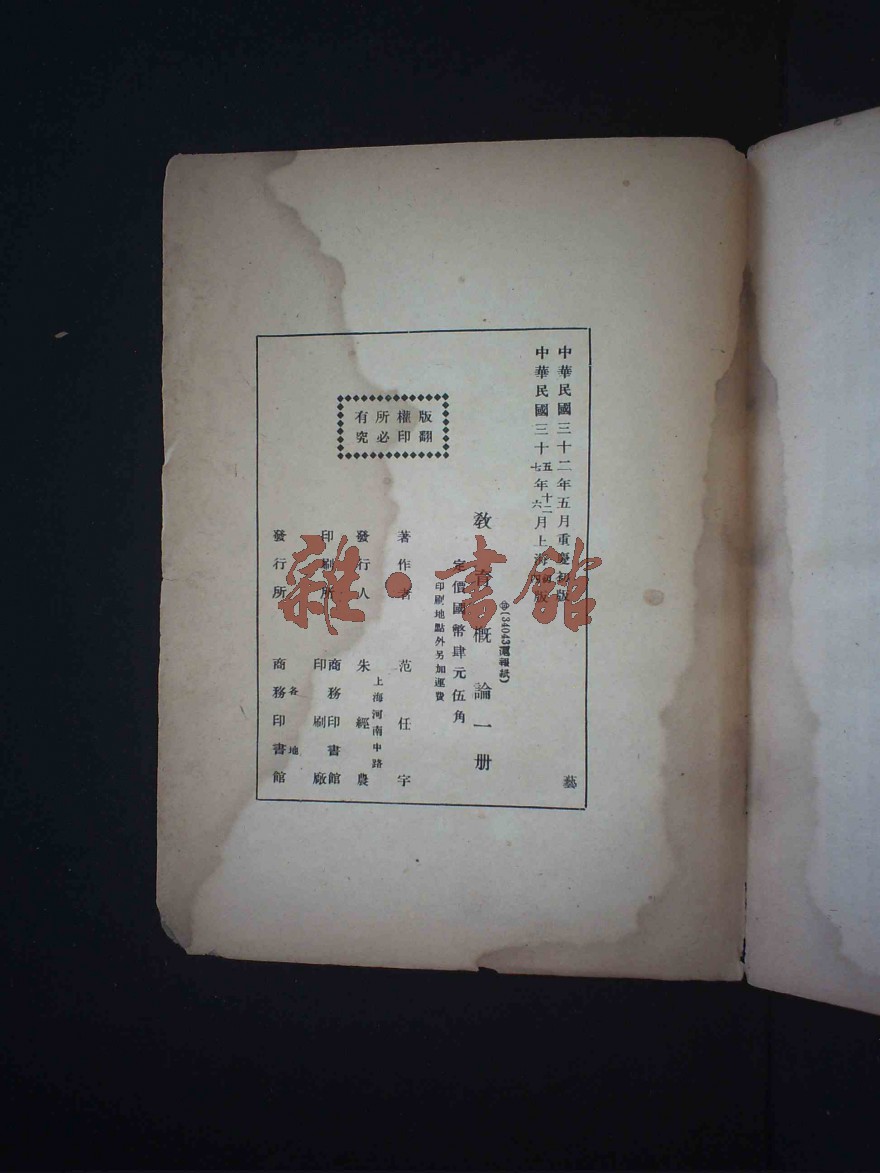 中華民國三十二年五月重慶初版
中華民國三十五年十二月上海初版
七 六 四
教育概論一册
(34043滬報紙)
定價國幣肆元伍角
印刷地點外另加運費
著作者 范任宇
發行人 朱經農
上海河南中路
印刷所 商務印書館
印刷廠
發行所 商務印書館
各地
版權所有
翻印必究
藝
雜·書館